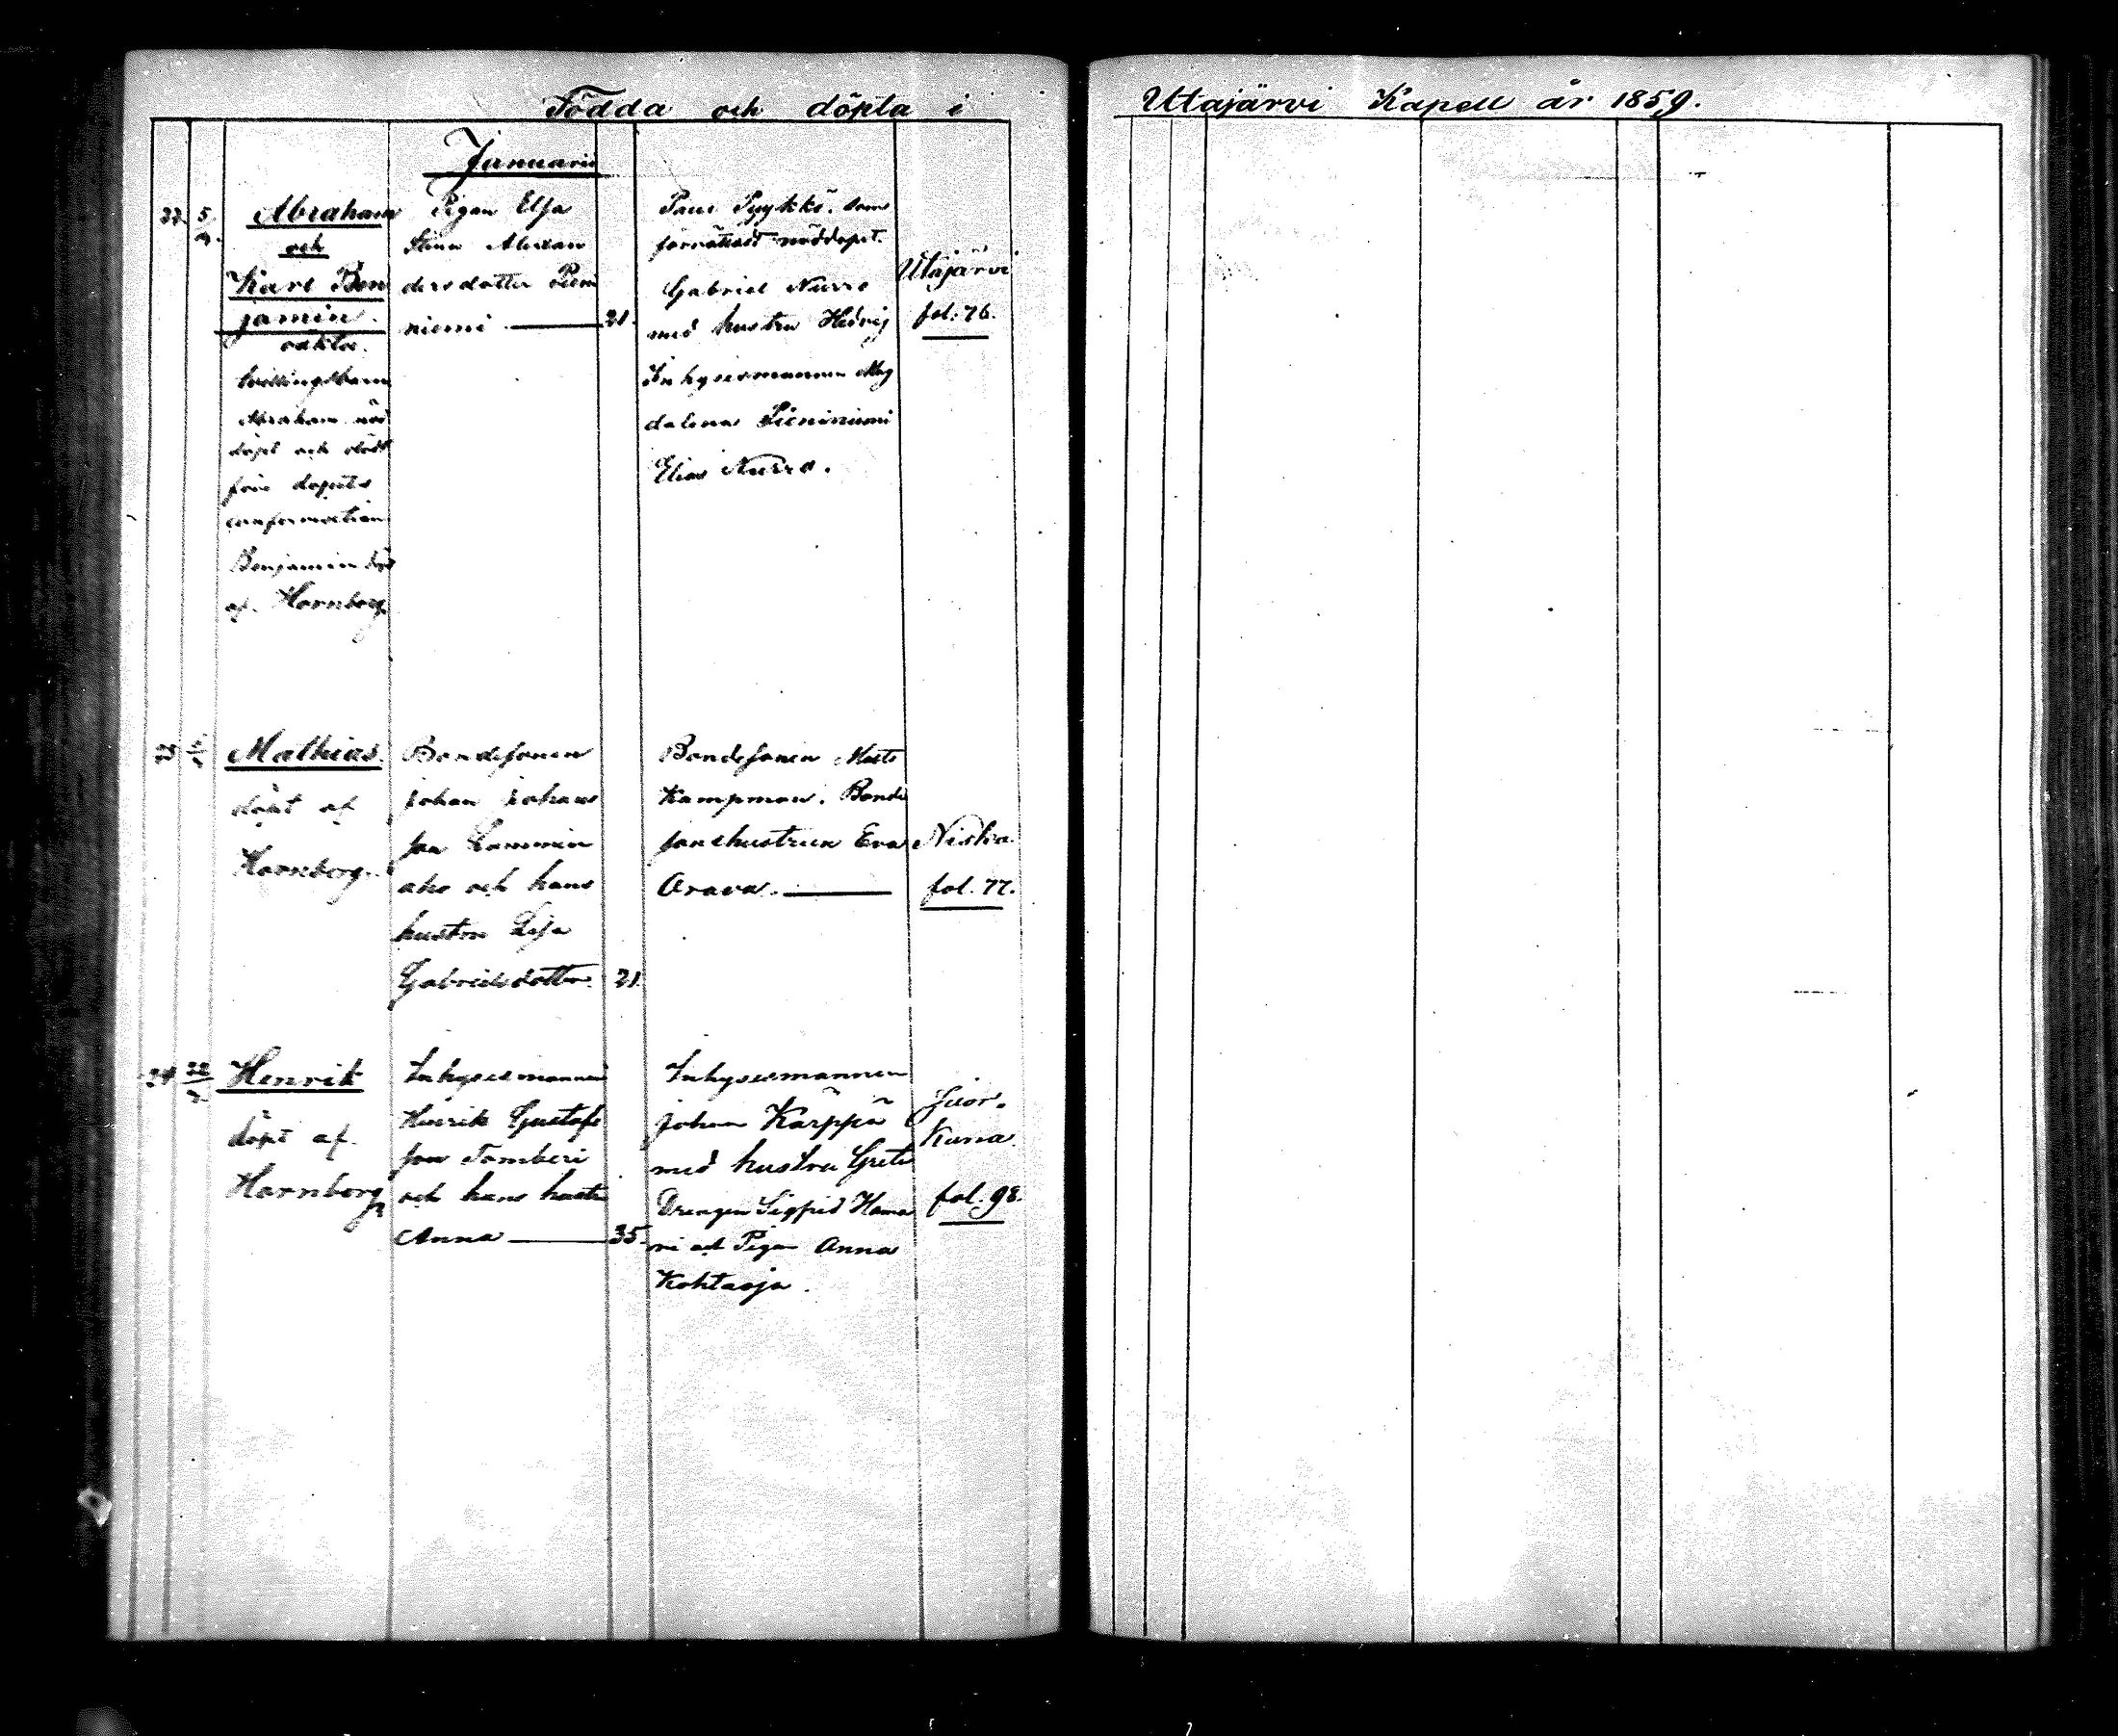 Födda och döpta i Utajärvi Kapell år 1859.
Januarii
22. 5
Abraham
och
Karl Ben
jamin.
oäkta.
tvillingsbarn
Abraham nöd
döpt och dödt
före dopets
confirmation
Benjamin döpt
af Hornborg
Pigan Elsa
Stina Alexan
dersdotter Pieni
niemi 21.
Paul Pyykkö. som
förrättade nöddopet.
Gabriel Nurro
med hustru Hedvig
Inhysesmannen Mag
dalena Pieniniemi
Elias Nurro.
Utajärvi
fol. 76.
23
Mathias.
döpt af
Hornborg.
Bondesonen
Johan Johans
son Lammin
aho och hans
hustru Lisa
Gabrielsdotter. 21.
Bondesonen Matts
Kampman. Bonde
sonehustrun Eva
Orava.
Niska
fol. 77.
24 22
Henrik
döpt af
Hornborg
Inhysesmannen
Henrik Gustafs
son Tomberi
och hans hustru
Anna 35.
Inhysesmannen
Johan Kärppä
med hustru Greta
Drengen Sigfrid Hama
ri och Pigan Anna
Kohtaoja.
Juor-
kuna.
fol. 98.